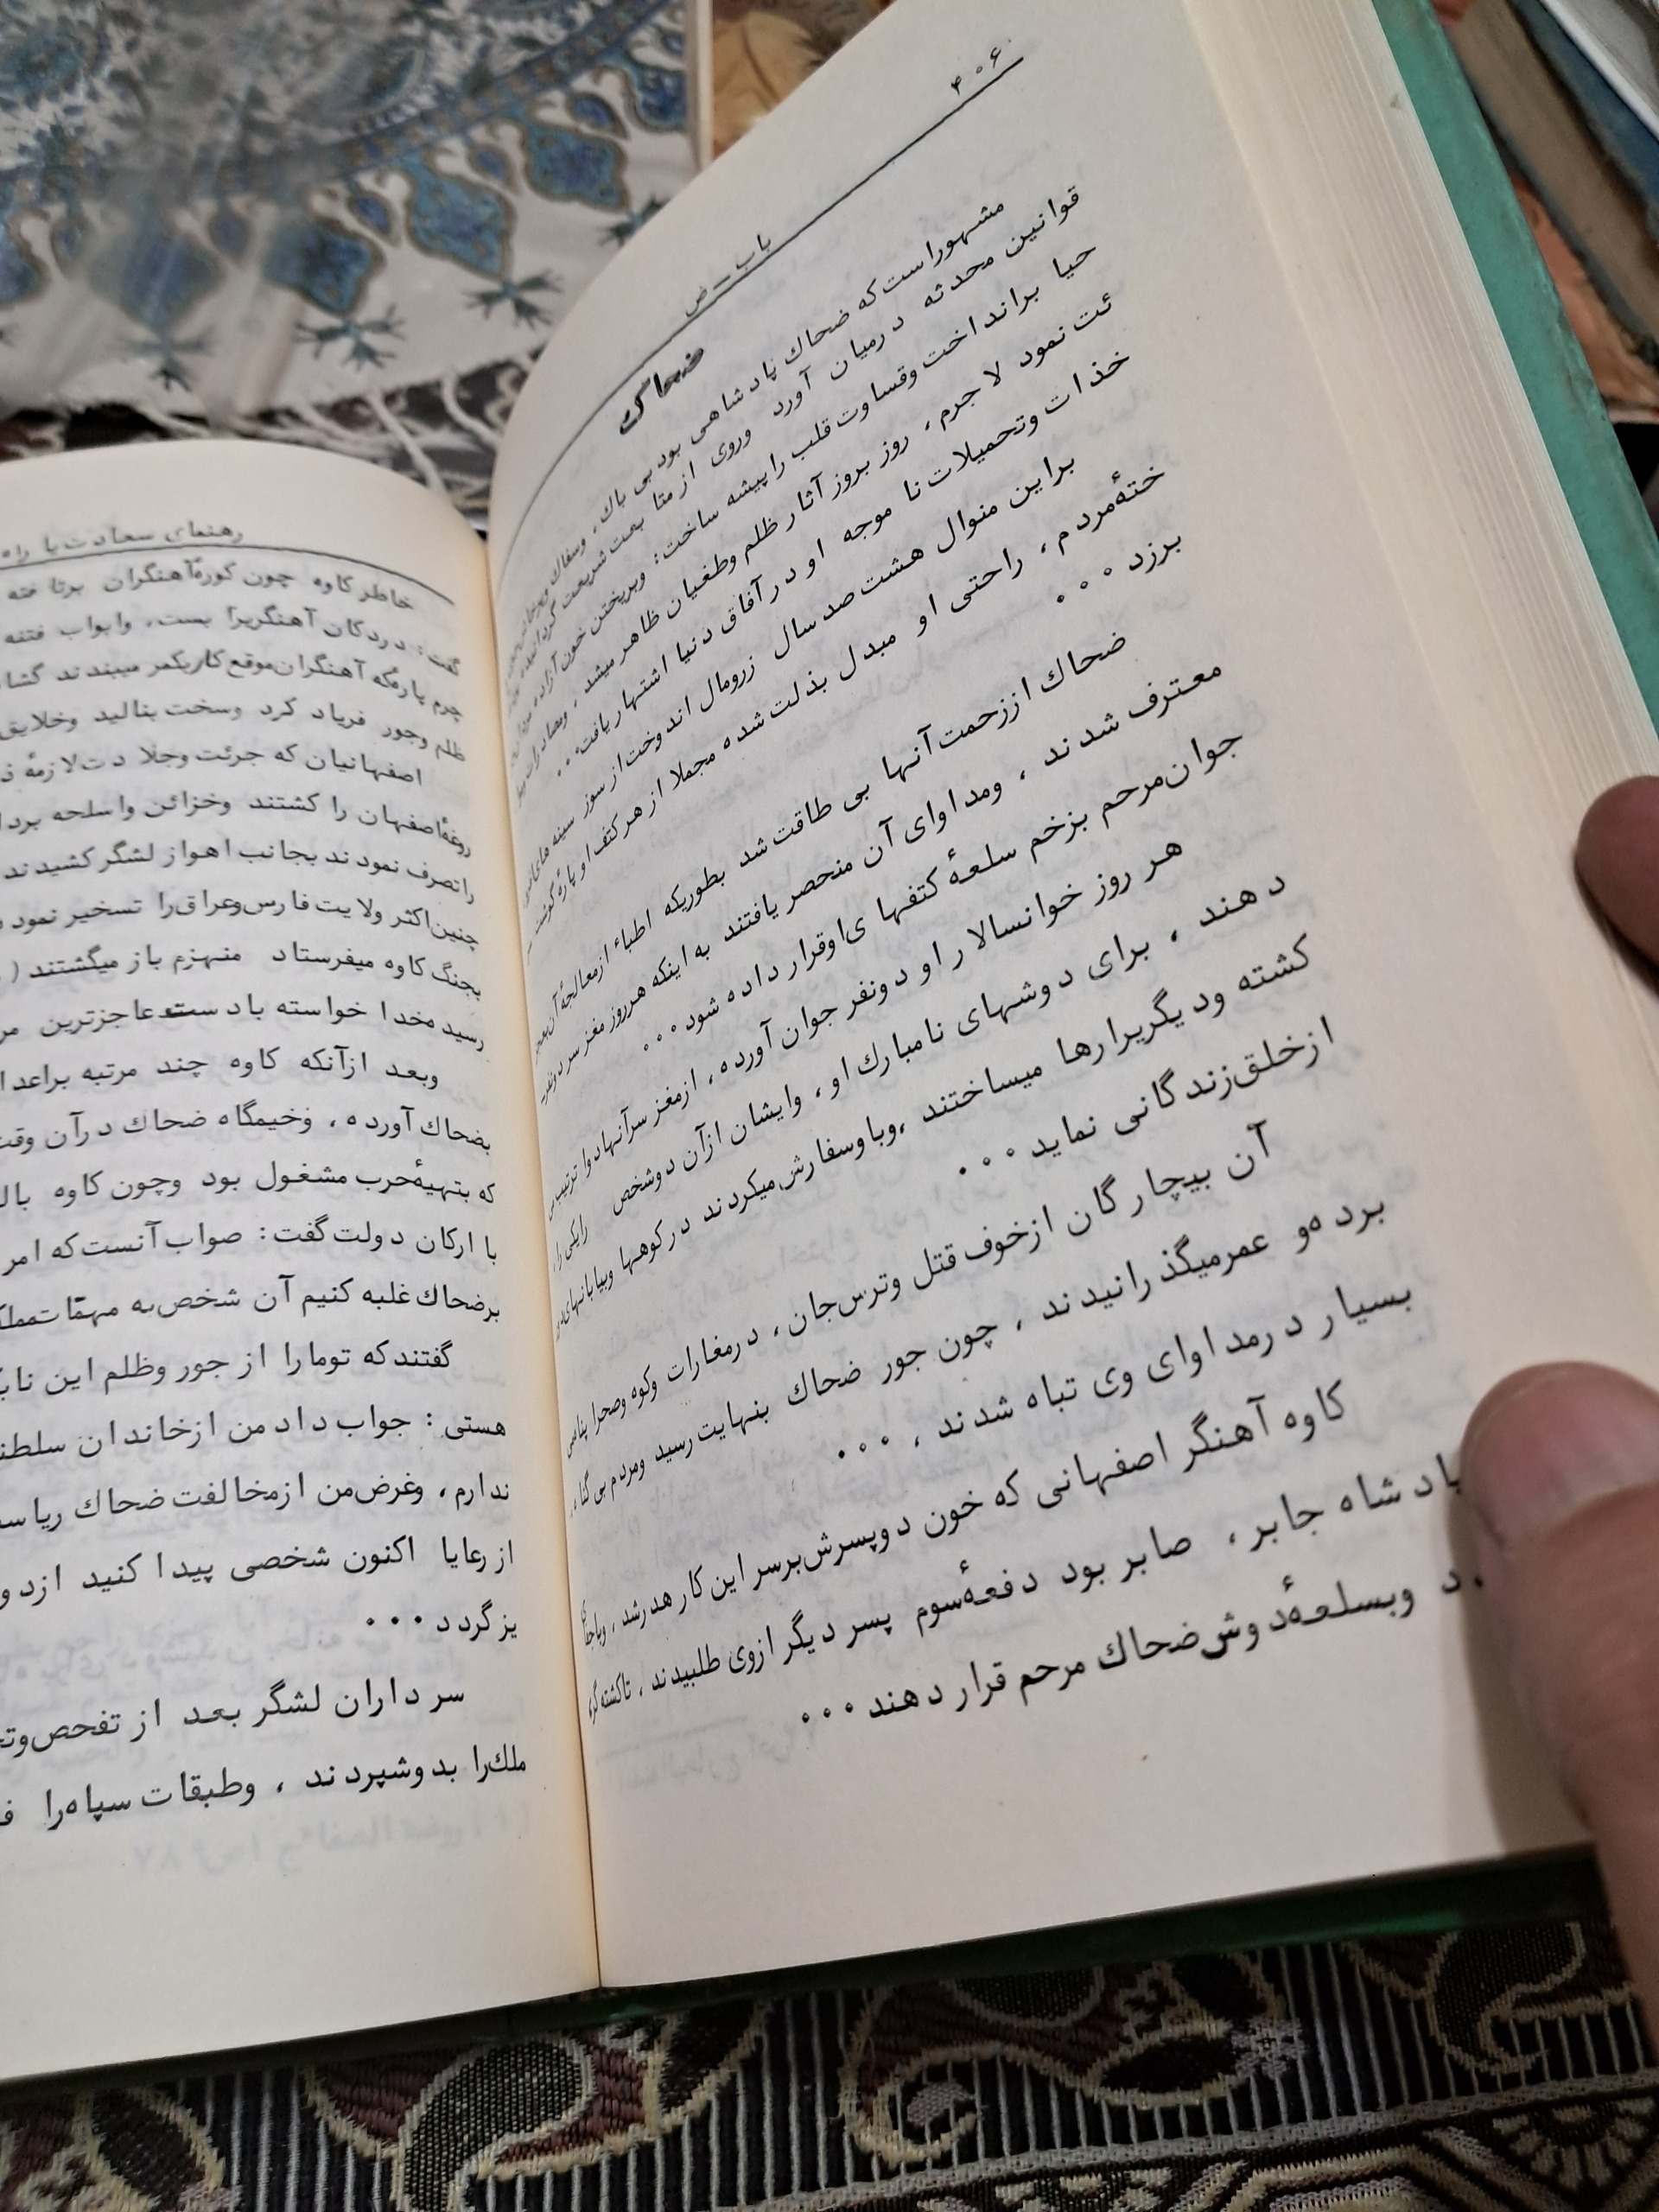 ۴۰۶
باب ــ ض
ضحاک
مشهوراست که ضحاك پادشاهی بود بی باك ، وسفاك
قوانین محدثه درمیان آورد وروی از متا بعت شریعت گردانید
حیا برانداخت وقساوت قلب را پیشه ساخت : وبریختن خون آزاده
ئت نمود لاجرم ، روز بروز آثار ظلم وطغیان ظاهر میشد ،
خذات وتحمیلات نا موجه او در آفاق دنیا اشتهار یافت ۰۰۰
براین منوال هشت صد سال زرومال اندوخت از سوز سینه های
ختهٔ مردم ، راحتی او مبدل بذلت شده مجملا از هر کتف او پارهٔ گوشت
برزد ۰۰۰
ضحاك اززحمت آنها بی طاقت شد بطوریکه اطباء ازمعالجهٔ آن
معترف شدند ، ومداوای آن منحصر یافتند به اینکه هرروز مغز سر دونفر
جوان مرحم بزخم سلعهٔ کتفها ی اوقرار داده شود ۰۰۰
هر روز خوانسالار او دونفر جوان آورده ، ازمغز سرآنهادوا ترتیب
دهند ، برای دوشهای نامبارك او ، وایشان ازآن دوشخص رایکی را
کشته ودیگریرارها میساختند ،وباوسفارش میکردند درکوهها وبیابانهای
ازخلق زندگانی نماید ۰۰۰
آن بیچارگان ازخوف قتل وترس جان ، درمغارات وکوه وصحرا پناهی
برده و عمرمیگذرانیدند ، چون جور ضحاك بنهایت رسید ومردم بی گناه
بسیار درمداوای وی تباه شدند ، ۰۰۰
کاوه آهنگر اصفهانی که خون دوپسرش برسر این کار هدرشد ، وباجفای
پادشاه جابر ، صابر بود دفعهٔ سوم پسر دیگر ازوی طلبیدند ، تاکشته گرد
د وبسلعهٔ دوش ضحاك مرحم قرار دهند ۰۰۰
رهنمای سعادت یا راه
خاطر کاوه چون کورهٔ آهنگران برتا فته
گفت : دردکان آهنگریرا بست ، وابواب فتنه
چرم پارهٔ که آهنگران موقع کاربکمر میبندند گشا
ظلم وجور فریاد کرد وسخت بنالید وخلایق
اصفهانیان که جرئت وجلا دت لازمهٔ ذ
روغهٔ اصفهان را کشتند وخزائن واسلحه بردا
راتصرف نمودند بجانب اهواز لشگر کشیدند
چنین اکثر ولایت فارس وعراق را تسخیر نمود
بجنگ کاوه میفرستاد منهزم باز میگشتند (
رسید مخدا خواسته بادست عاجزترین مر
وبعد ازآنکه کاوه چند مرتبه براعدا
بضحاك آورده ، وخیمگاه ضحاك درآن وقت
که بتهیهٔ حرب مشغول بود وچون کاوه بال
با ارکان دولت گفت : صواب آنست که امر
برضحاك غلبه کنیم آن شخص به مهمّات مملک
گفتند که تومارا از جور وظلم این ناب
هستی : جواب داد من ازخاندان سلطن
ندارم ، وغرض من ازمخالفت ضحاك ریاس
از رعایا اکنون شخصی پیدا کنید ازد و
یزگردد ۰۰۰
سرداران لشگر بعد از تفحص وتج
ملك را بدوشپردند ، وطبقات سپاه را ف